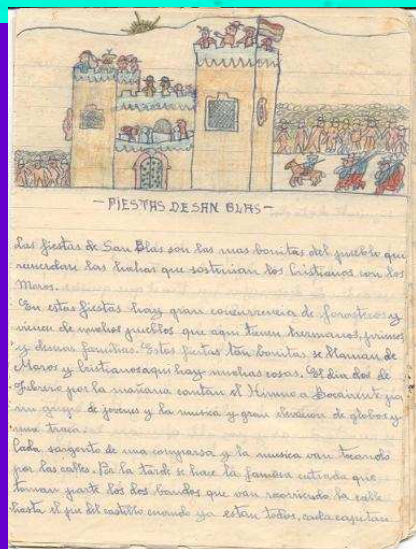 - FIESTAS DE SAN BLAS -
Las fiestas de San Blas son las mas bonitas del pueblo que
recuerdan las luchas que sostenian los Cristianos con los
Moros.
En estas fiestas hay gran concurrencia de forasteros y
vienen de muchos pueblos que aqui tienen hermanos, primos
y demas familias. Estas fiestas tan bonitas se llaman de
Moros y Cristianos aqui hay muchas cosas. El dia dos de
Febrero por la mañana cantan el Himno a Bocairent por
un grupo de jovenes y la musica y gran elevacion de globos y
una traca.
Cada sargento de una comparsa y la musica van tocando
por las calles. Por la tarde se hace la famosa entrada que
toman parte los dos bandos que van recorriendo la calle
hasta el pie del castillo cuando ya estan todos, cada capitan